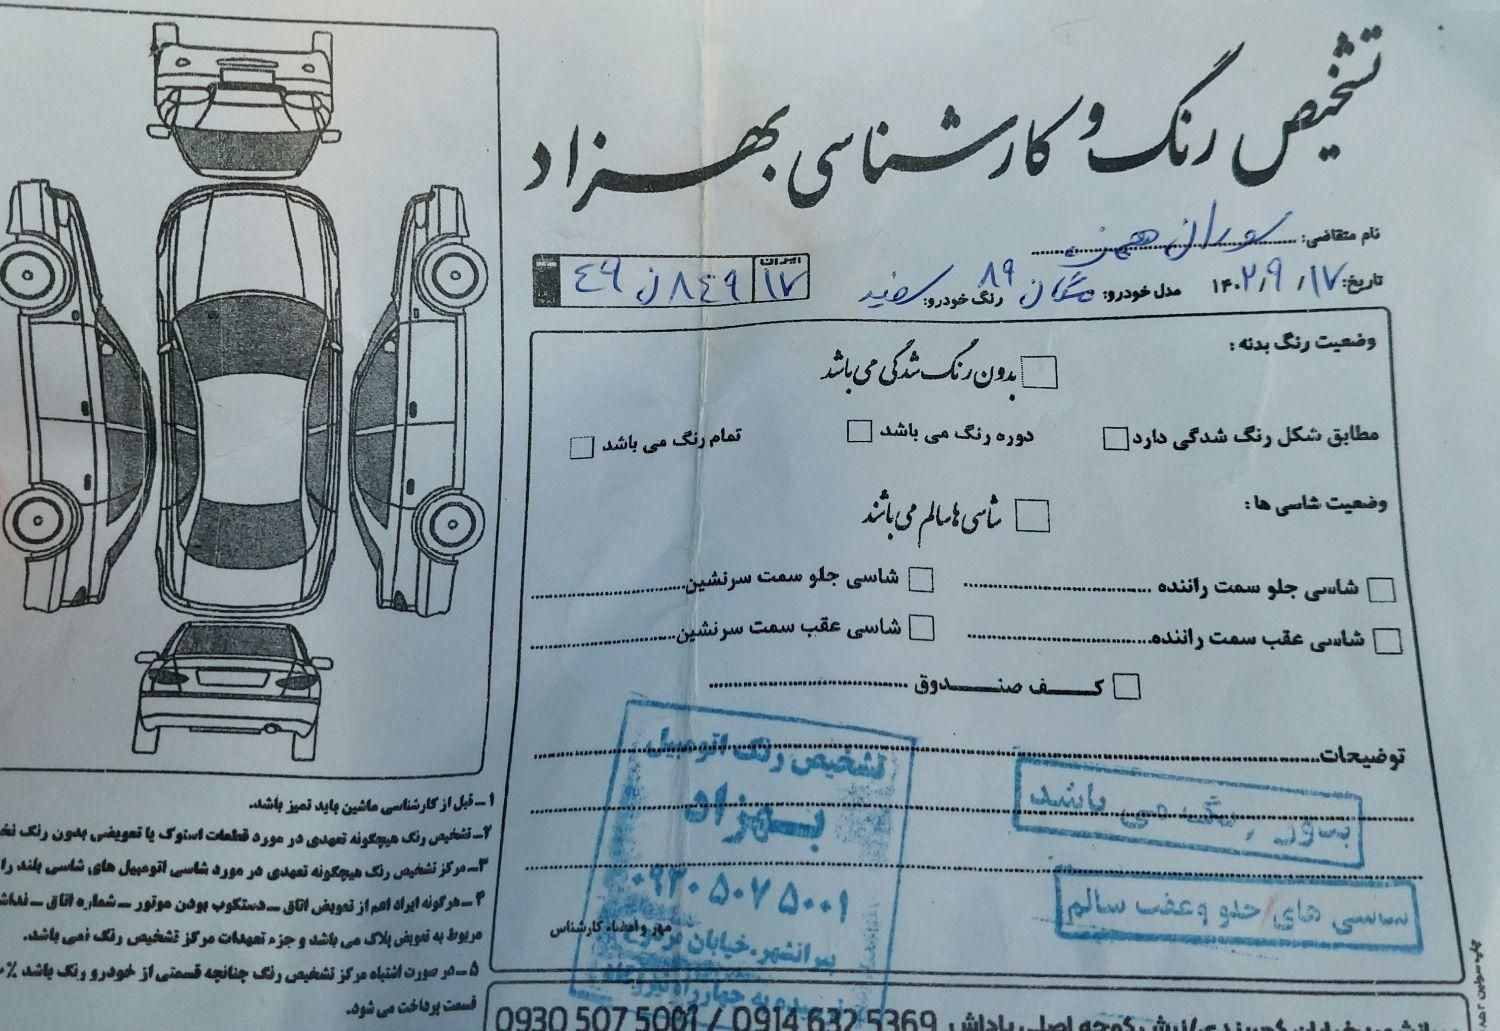 تشخیص رنگ و کارشناسی بهزاد
نام متقاضی:
تاریخ: ۱۴۰۲/۹/۱۷ مدل خودرو: مگان ۸۹ رنگ خودرو: سفید
۱۷ ۸۴۹ ن ۴۶
وضعیت رنگ بدنه :
بدون رنگ شدگی می باشد
مطابق شکل رنگ شدگی دارد
دوره رنگ می باشد
تمام رنگ می باشد
وضعیت شاسی ها :
شاسی ها سالم می باشند
شاسی جلو سمت راننده
شاسی جلو سمت سرنشین
شاسی عقب سمت راننده
شاسی عقب سمت سرنشین
کف صندوق
توضیحات
بدون رنگ می باشد
شاسی های جلو و عقب سالم
تشخیص رنگ اتومبیل
بهزاد
۰۹۳۰۵۰۷۵۰۰۱
پیرانشهر.خیابان
مهر و امضاء کارشناس
۱_ قبل از کارشناسی ماشین باید تمیز باشد.
۲_ تشخیص رنگ هیچگونه تعهدی در مورد قطعات استوک یا تعویضی بدون رنگ
۳_ مرکز تشخیص رنگ هیچگونه تعهدی در مورد شاسی اتومبیل های شاسی بلند
۴_ هرگونه ایراد اعم از تعویض اتاق _ دستکوب بودن موتور _ شماره اتاق _
مربوط به تعویض پلاک می باشد و جزء تعهدات مرکز تشخیص رنگ نمی باشد.
۵_ در صورت اشتباه مرکز تشخیص رنگ چنانچه قسمتی از خودرو رنگ باشد
قسمت پرداخت می شود.
نبش کوچه اصلی پاداش 0914 632 5369 / 0930 507 5001